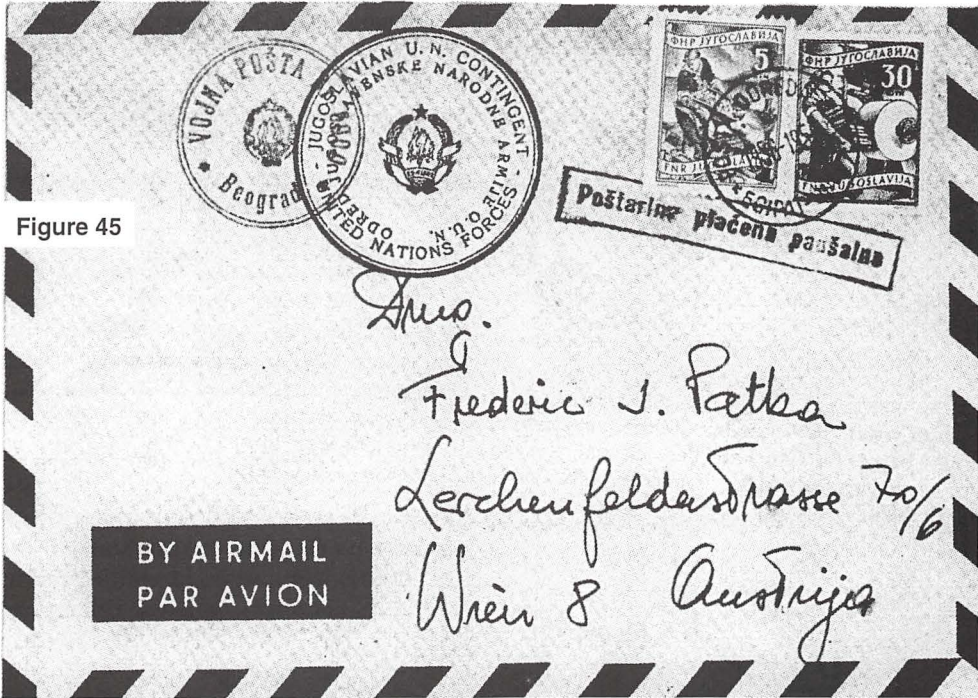 VOJNA POŠTA
Beograd
JUGOSLAVIAN U. N. CONTINGENT - UNITED NATIONS FORCES -
ODRED JUGOSLAVENSKE NARODNE ARMIJE O.U.N.
ФНР ЈУГОСЛАВИЈА
5
ФНР ЈУГОСЛАВИЈА
30
Poštarina plaćena paušalna
Figure 45
Frederic J. Patka
Lerchenfelderstrasse 70/6
Wien 8 Austrija
BY AIRMAIL
PAR AVION